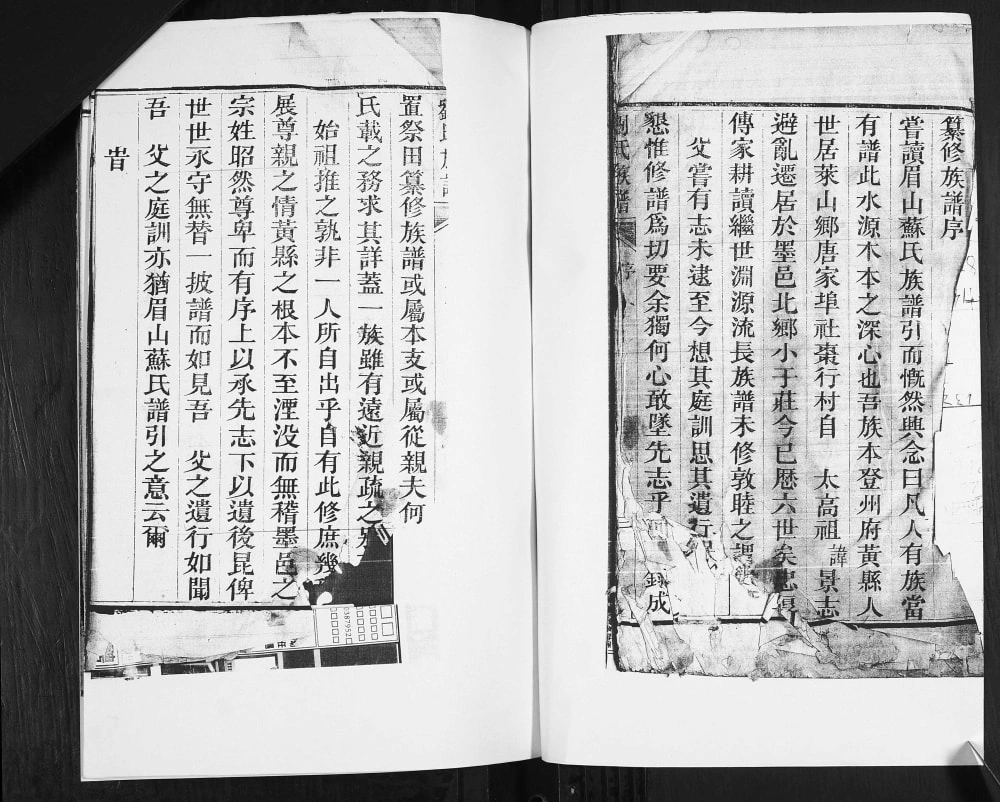 纂修族譜序
嘗讀眉山蘇氏族譜引而慨然興念曰凡人有族當
有譜此水源木本之深心也吾族本登州府黃縣人
世居萊山鄉唐家埠社棗行村自 太高祖 諱 景志
避亂遷居於墨邑北鄉小于莊今已歷六世矣忠厚
傳家耕讀繼世淵源流長族譜未修敦睦之謂
父嘗有志未逮至今想其庭訓思其遺行
懇惟修譜爲切要余獨何心敢墜先志乎 成
劉氏族譜 序
劉氏族譜
置祭田纂修族譜或屬本支或屬從親夫何
氏載之務求其詳蓋一族雖有遠近親疏之別
始祖推之孰非一人所自出乎自有此修庶幾
展尊親之情黃縣之根本不至湮没而無稽墨邑之
宗姓昭然尊卑而有序上以承先志下以遺後昆俾
世世永守無替一披譜而如見吾 父之遺行如聞
吾 父之庭訓亦猶眉山蘇氏譜引之意云爾
旹